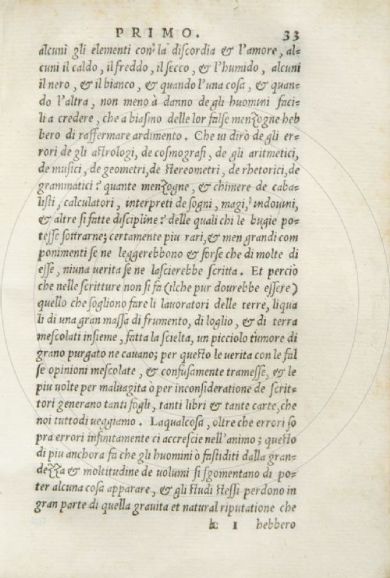 PRIMO. 33
alcuni gli elementi con la discordia & l'amore, al-
cuni il caldo, il freddo, il secco, & l'humido, alcuni
il nero, & il bianco, & quando l'una cosa, & quan-
do l'altra, non meno à danno de gli huomini faci-
li a credere, che a biasmo delle lor false menzogne heb
bero di raffermare ardimento. Che ui dirò de gli er-
rori de gli astrologi, de cosmografi, de gli aritmetici,
de musici, de geometri, de stereometri, de rhetorici, de
grammatici? quante menzogne, & chimere de caba-
listi, calculatori, interpreti de sogni, magi, indouini,
& altre si fatte discipline? delle quali chi le bugie po-
tesse sottrarne; certamente piu rari, & men grandi com
ponimenti se ne leggerebbono & forse che di molte di
esse, niuna uerita se ne lascierebbe scritta. Et perciò
che nelle scritture non si fa (ilche pur dourebbe essere)
quello che sogliono fare li lauoratori delle terre, liqua
li di una gran massa di frumento, di loglio, & di terra
mescolati insieme, fatta la scielta, un picciolo tumore di
grano purgato ne cauano; per questo le uerita con le fal
se opinioni mescolate, & confusamente tramesse, & le
piu uolte per maluagita ò per inconsideratione de scrit-
tori generano tanti fogli, tanti libri & tante carte, che
noi tutto di ueggiamo. Laqualcosa, oltre che errori so
pra errori infinitamente ci accrescie nell'animo; questo
di piu anchora fa che gli huomini ò fastiditi dalla gran-
dezza & moltitudine de uolumi si sgomentano di po-
ter alcuna cosa apparare, & gli studi stessi perdono in
gran parte di quella grauita et natural riputatione che
I hebbero